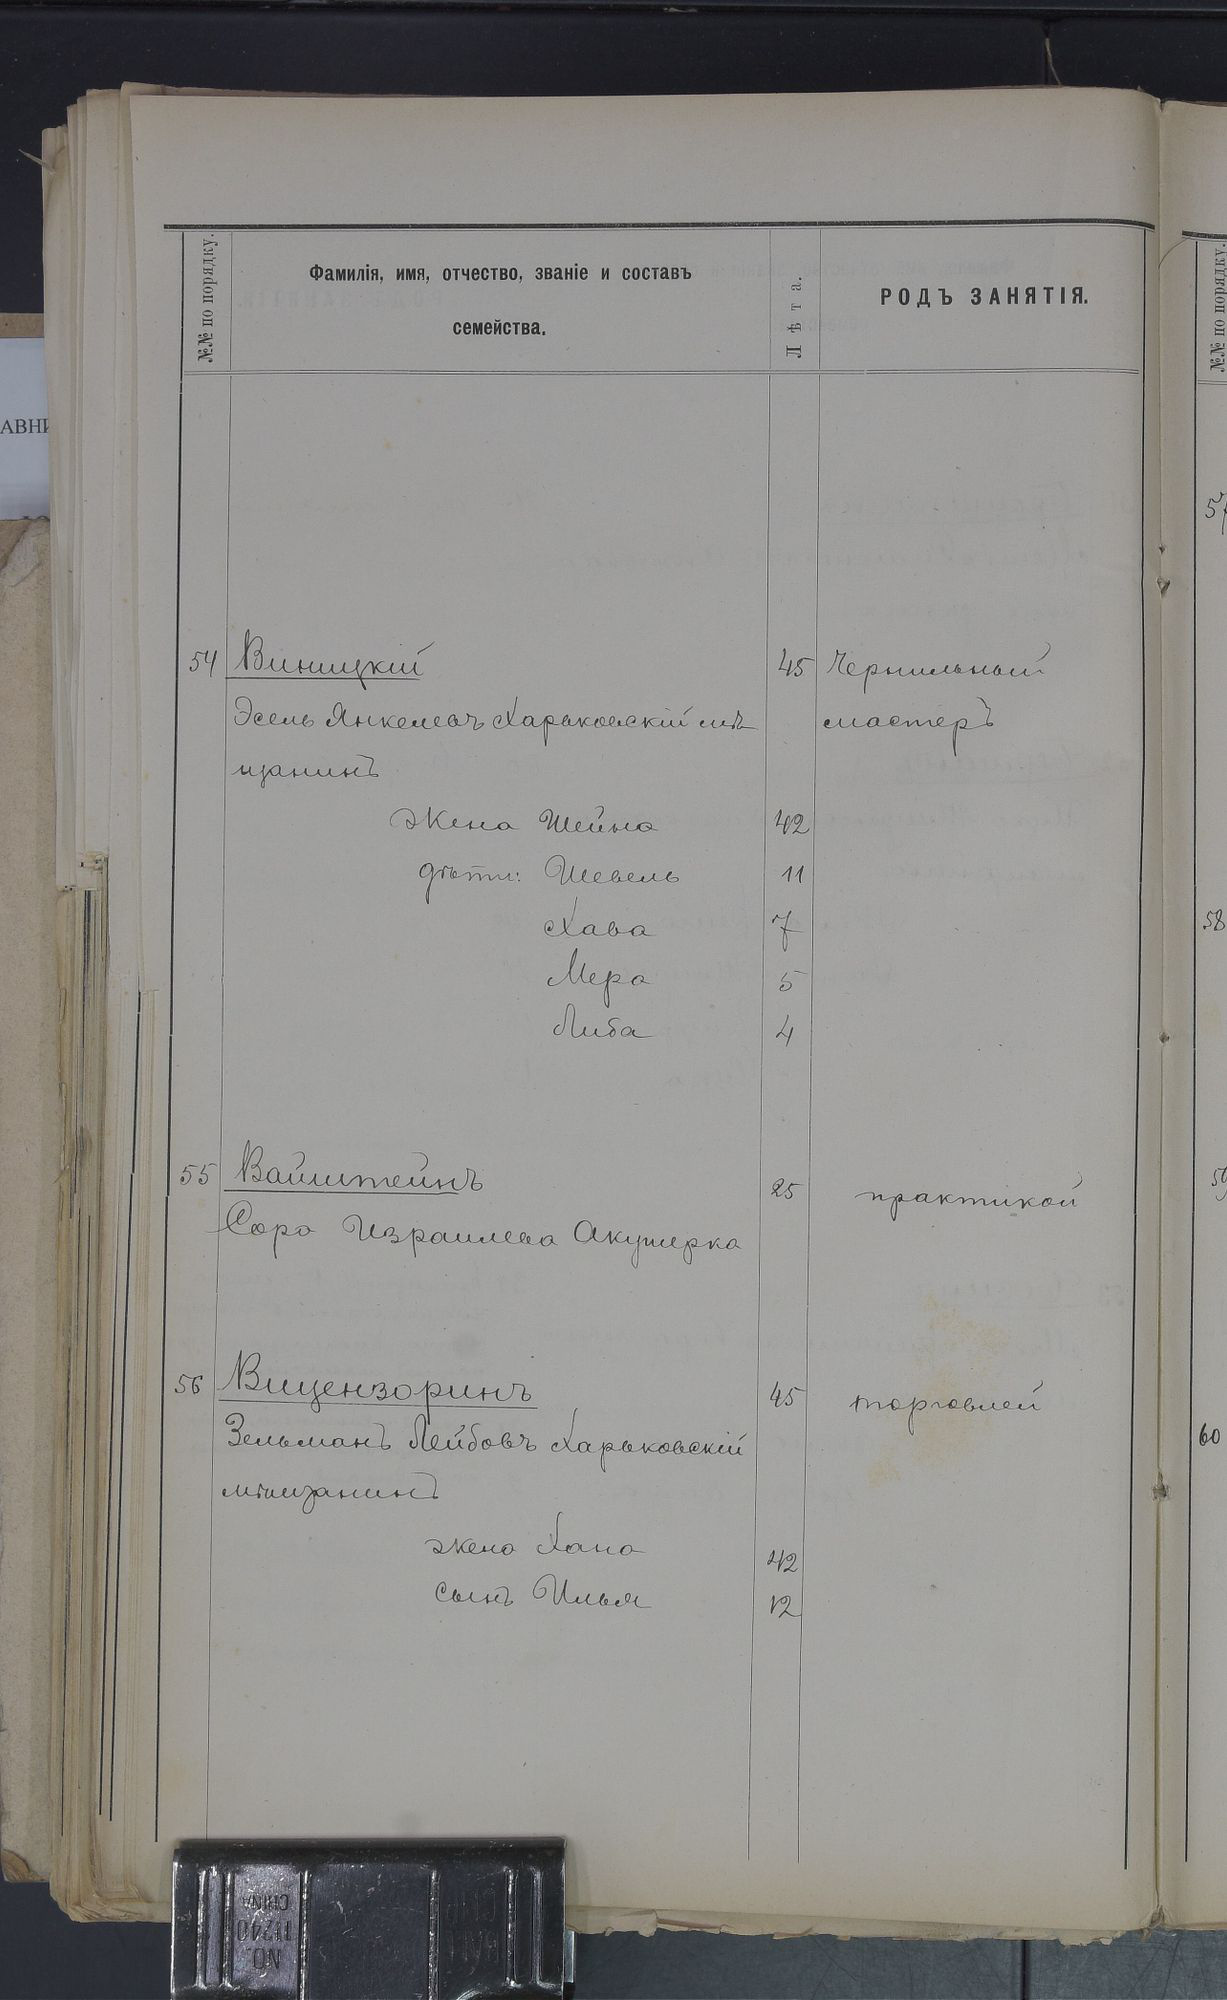 №№ по порядку.
Фамилія, имя, отчество, званіе и составъ
семейства.
Лѣта.
РОДЪ ЗАНЯТІЯ.
54 Виницкій 45 Чернильный
Эсель Янкелевъ Харьковскій мѣ- мастеръ
щанинъ
жена Шейна 42
дѣти: Шевель 11
Хава 7
Мера 5
Либа 4
55 Вайнштейнъ 25 практикой
Сора Израилева Акушерка
56 Вицензоринъ 45 торговлей
Зельманъ Лейбовъ Харьковскій
мѣщанинъ
жена Хана 42
сынъ Илья 12
№№ по порядку.
57
58
59
60
АВНИ
NO.
11240
CHINA